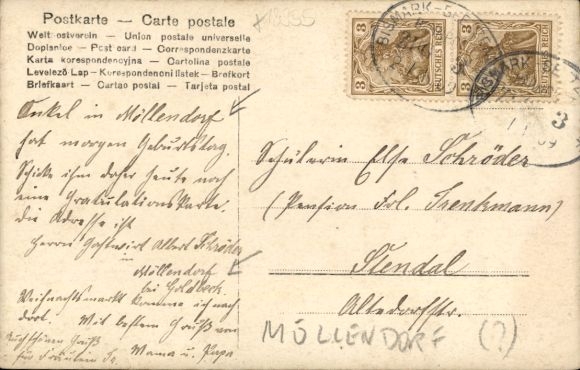 Postkarte — Carte postale
Weltpostverein – Union postale universelle
Dopisnice – Post card – Correspondenzkarte
Karta korespondencyjna – Cartolina postale
Levelező Lap – Korespondenční lístek – Brefkort
Briefkaart – Cartao postal – Tarjeta postal
3 DEUTSCHES REICH 3
3 DEUTSCHES REICH 3
BISMARK
Onkel in Möllendorf
hat morgen Geburtstag.
Schicke ihm daher heute noch
eine Gratulations Karte.
die Adresse ist
Herrn Gastwirt Albert Schröder
in Möllendorf
bei Goldbeck.
Weihnachtsmarkt komme ich nach
dort. Mit bestem Gruß von
Mama u. Papa
Schülerin Else Schröder
(Pension Frl. Trenkmann)
Stendal
Altedorfstr.
MÖLLENDORF (?)